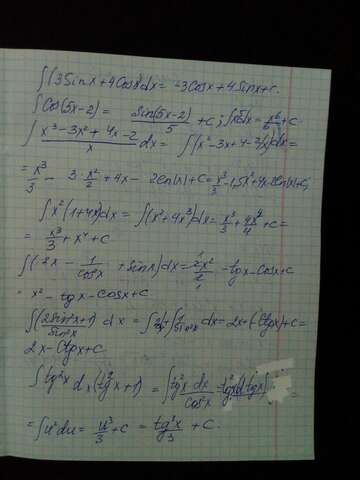 ∫(3Sinx+4Cosx)dx = -3Cosx+4Sinx+c.
∫Cos(5x-2)= Sin(5x-2)/5 +c; ∫x⁵dx= x⁶/6+c
∫ (x³-3x²+4x-2)/x dx = ∫(x²-3x+4-2/x)dx=
= x³/3 - 3·x²/2 +4x- 2ln|x|+c= x³/3-1,5x²+4x-2ln|x|+c;
∫x²(1+4x)dx = ∫(x²+4x³)dx= x³/3 + 4x⁴/4 +c=
= x³/3 + x⁴ +c
∫(2x - 1/cos²x + sinx)dx= 2x²/2 - tgx-cosx+c
= x² - tgx-cosx+c
∫ (2sin²x+1)/sin²x dx = ∫2dx+∫1/sin²x dx= 2x+(-Ctgx)+c=
2x-Ctgx+c.
∫tg²x dx(tg²x+1) = ∫tg²x dx/cos²x = tg²x d(tgx)
= ∫u²du= u³/3 +c = tg³x/3 +c.